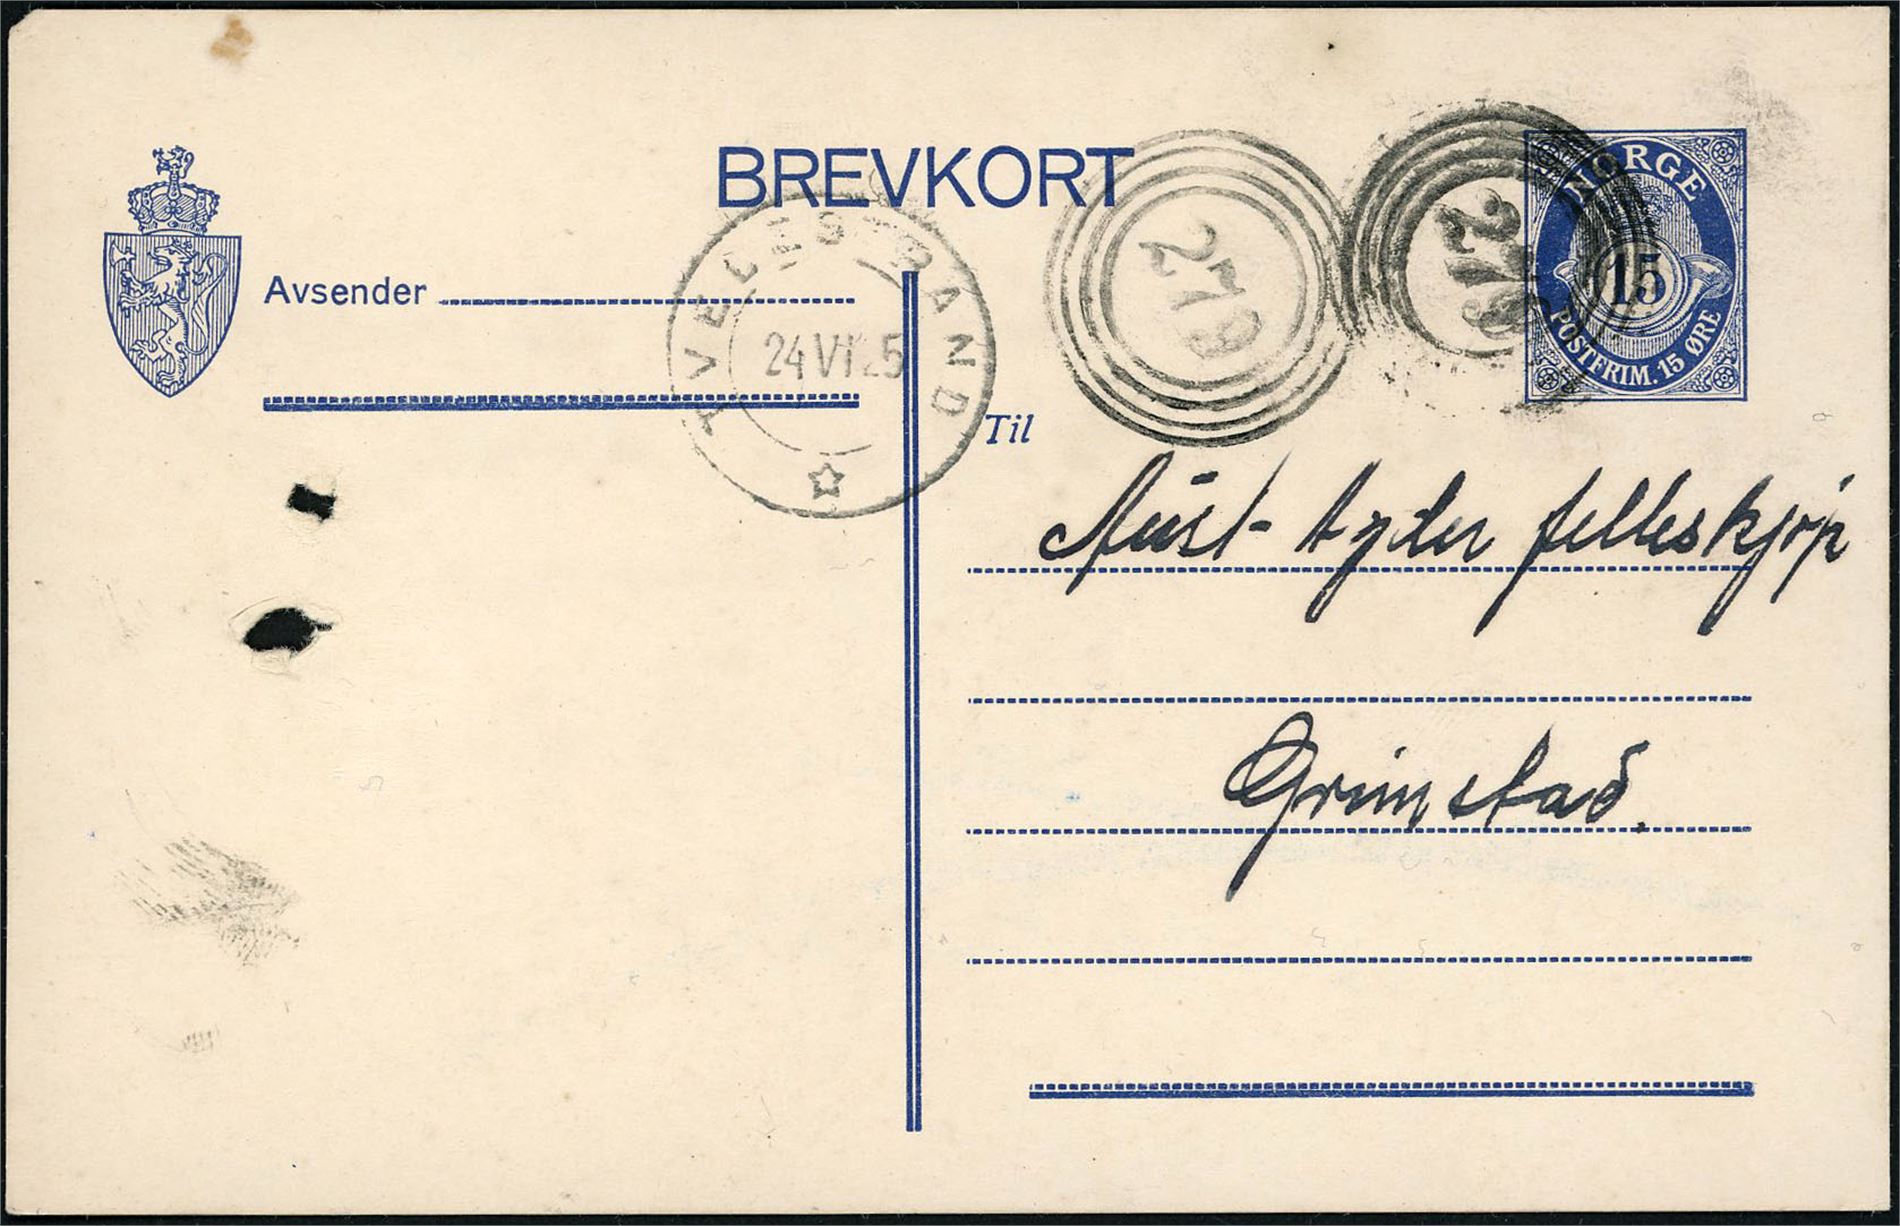 BREVKORT
Avsender
TVEDESTRAND
24 VI 25
278
278
NORGE
15
POSTFRIM. 15 ØRE
Til
Aust-Agder felleskjøp
Grimstad.